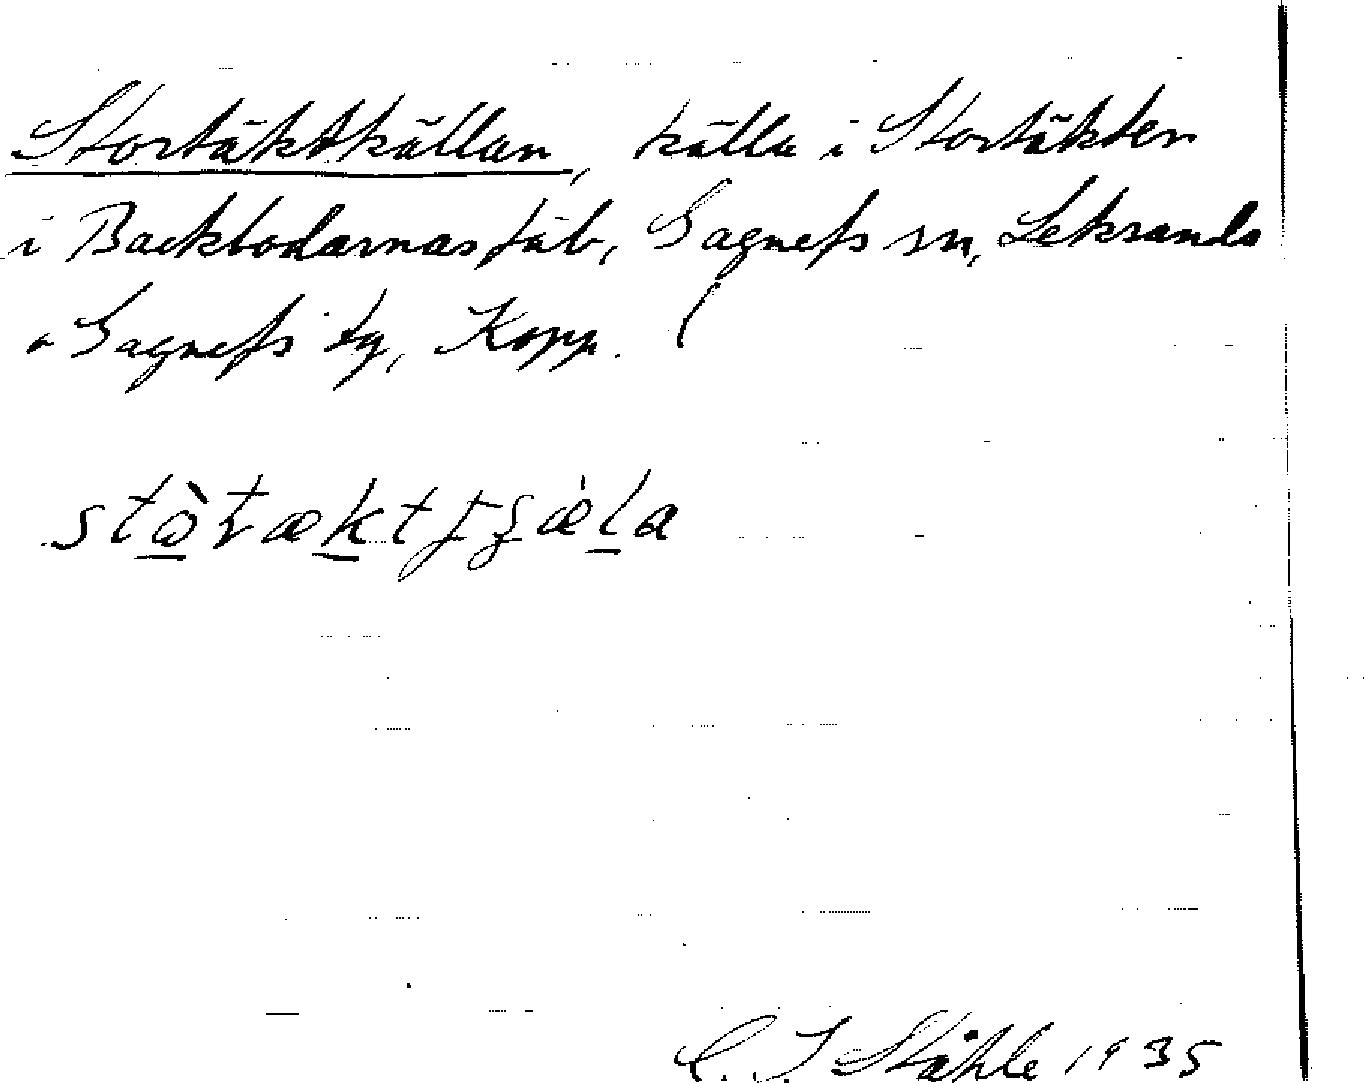 Stortäktkällan, källa i Stortäkten
i Backbodarnas fäb, Gagnefs sn, Leksands
o Gagnefs tg, Kopp.
C. I. Ståhle 1935